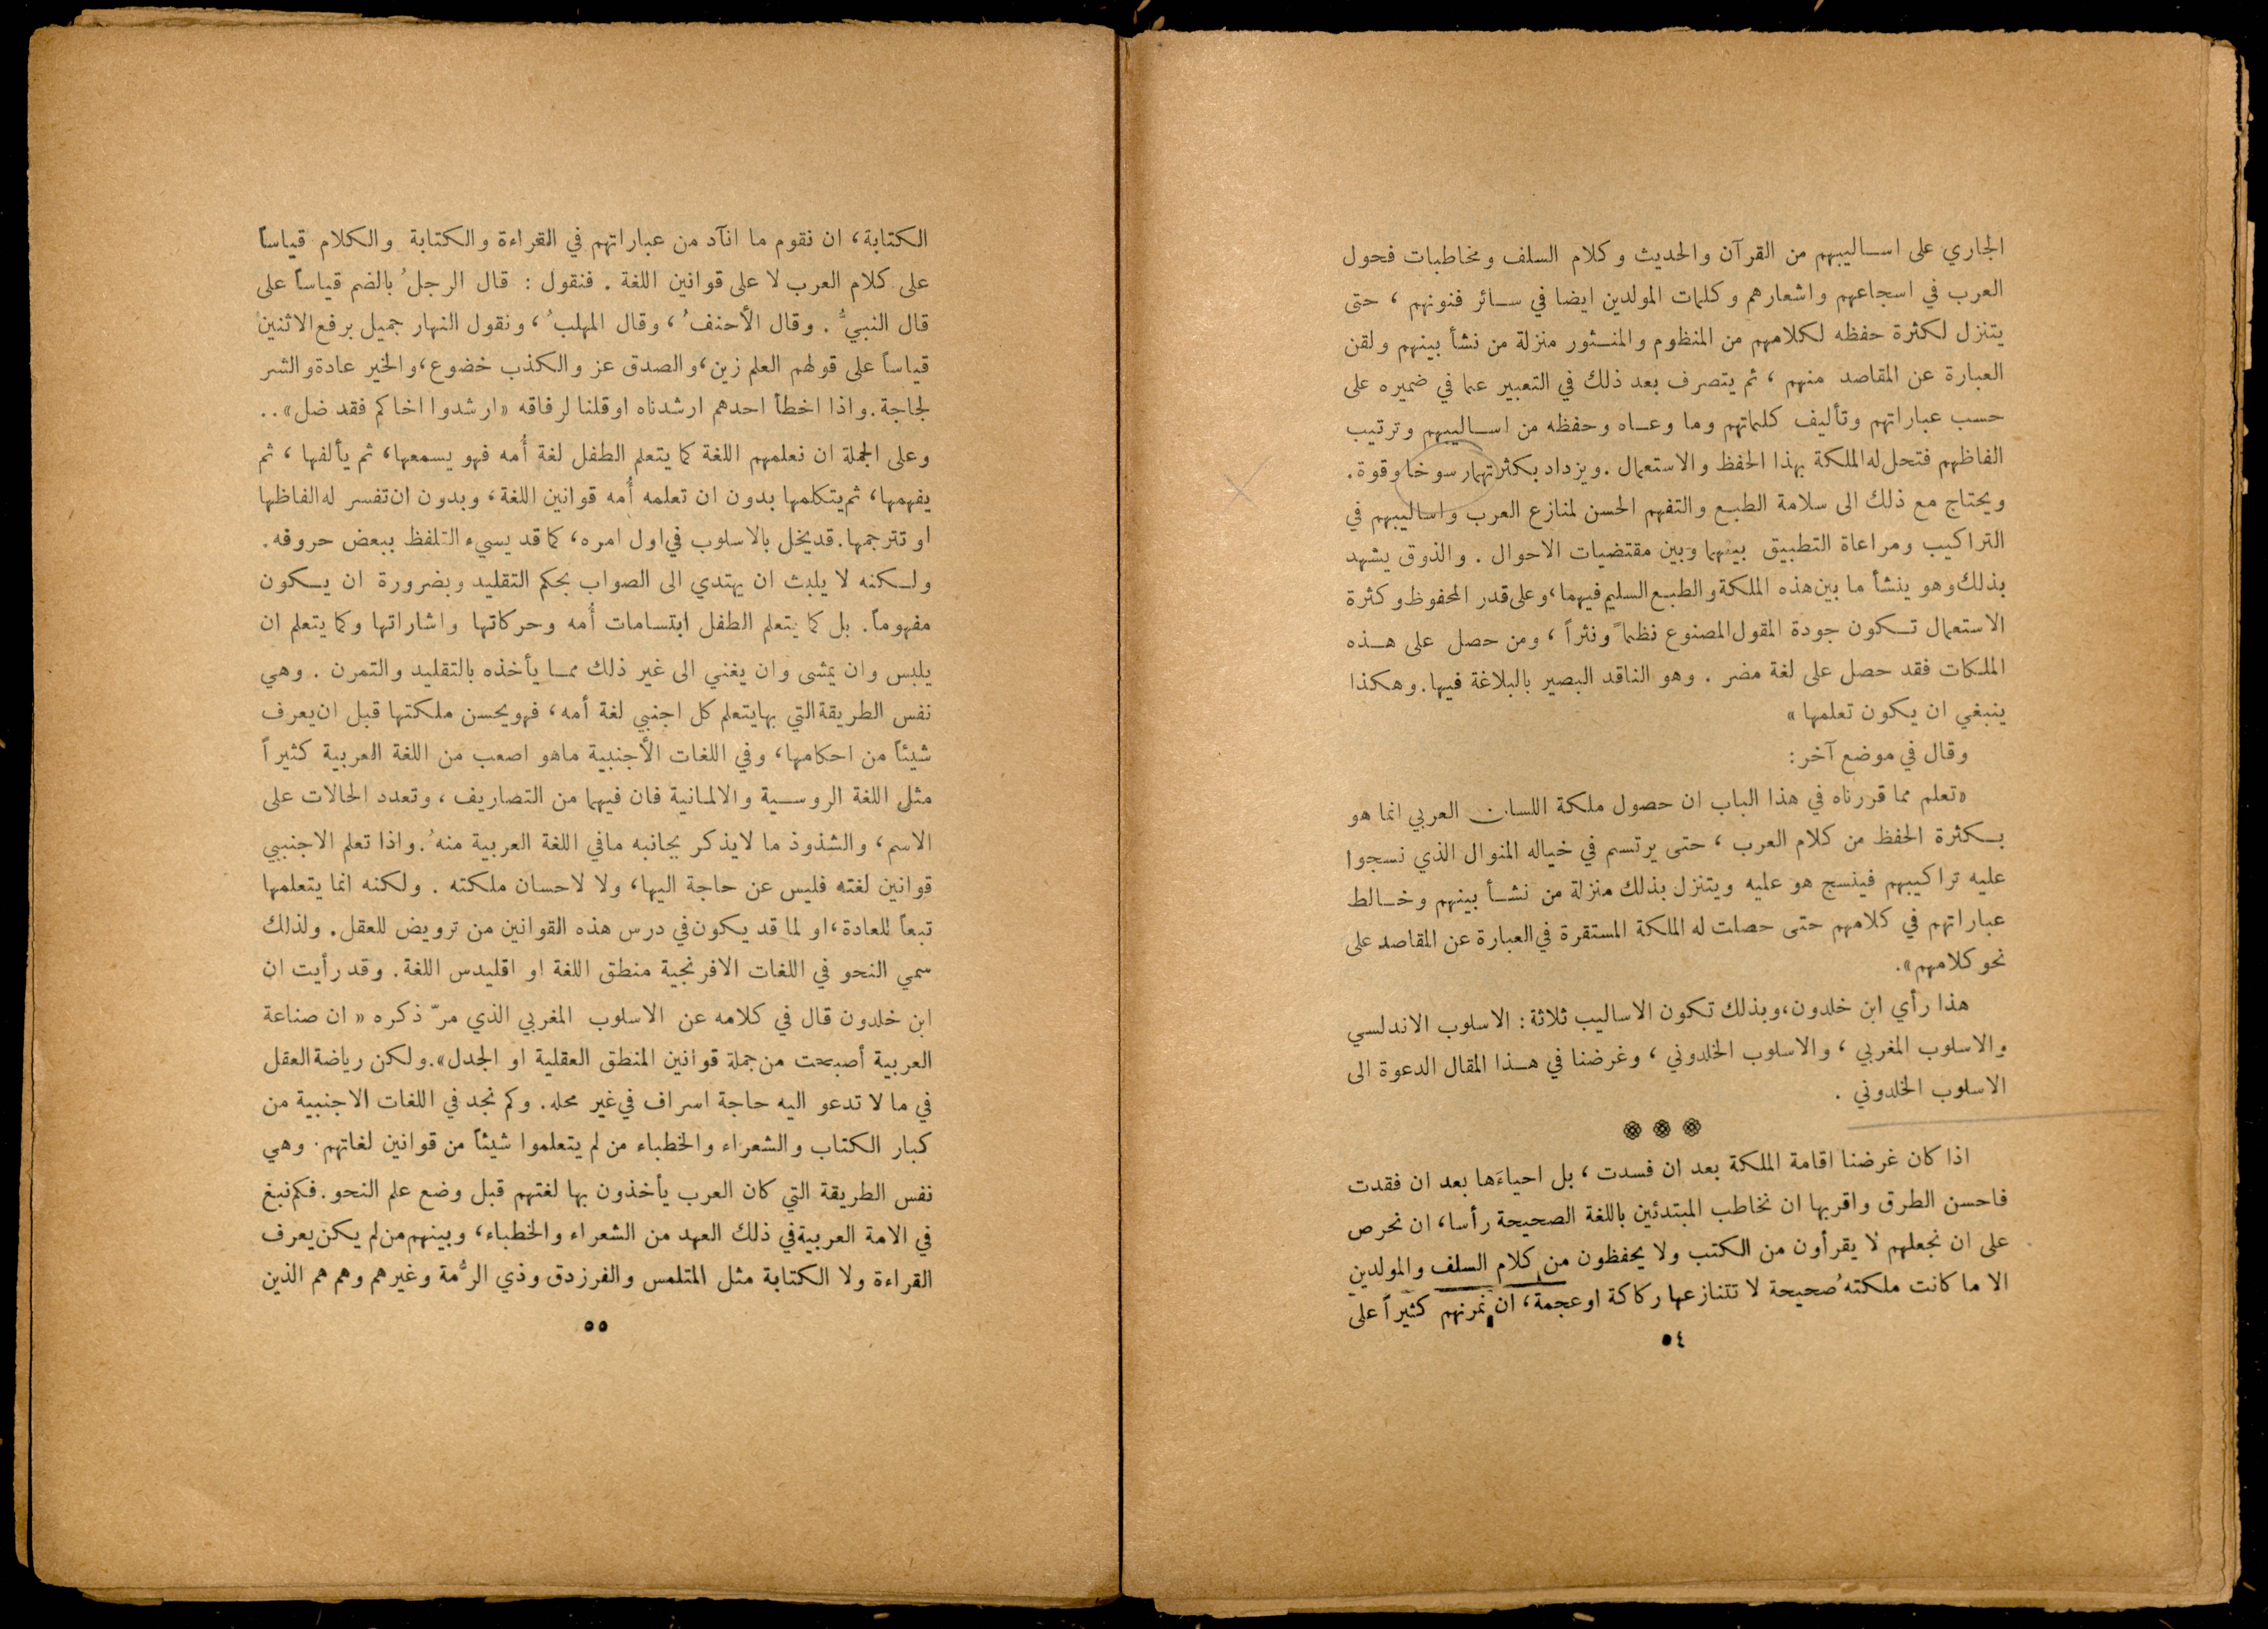 الجاري على اساليبهم من القرآن والحديث وكلام السلف ومخاطبات فحول
العرب في اسجاعهم واشعارهم وكلمات المولدين ايضا في سائر فنونهم ، حتى
يتنزل لكثرة حفظه لكلامهم من المنظوم والمنثور منزلة من نشأ بينهم ولقن
العبارة عن المقاصد منهم ، ثم يتصرف بعد ذلك في التعبير عما في ضميره على
حسب عباراتهم وتأليف كلماتهم وما وعاه وحفظه من اساليبهم وترتيب
الفاظهم فتحل له الملكة بهذا الحفظ والاستعمال . ويزداد بكثرتهما رسوخا وقوة .
ويحتاج مع ذلك الى سلامة الطبع والتفهم الحسن لمنازع العرب واساليبهم في
التراكيب ومراعاة التطبيق بينهما وبين مقتضيات الاحوال . والذوق يشهد
بذلك وهو ينشأ ما بين هذه الملكة والطبع السليم فيهما ، وعلى قدر المحفوظ وكثرة
الاستعمال تكون جودة المقول المصنوع نظماً ونثراً ، ومن حصل على هذه
الملكات فقد حصل على لغة مضر . وهو الناقد البصير بالبلاغة فيها . وهكذا
ينبغي ان يكون تعلمها »
وقال في موضع آخر :
« تعلم مما قررناه في هذا الباب ان حصول ملكة اللسان العربي انما هو
بكثرة الحفظ من كلام العرب ، حتى يرتسم في خياله المنوال الذي نسجوا
عليه تراكيبهم فينسج هو عليه ويتنزل بذلك منزلة من نشأ بينهم وخالط
عباراتهم في كلامهم حتى حصلت له الملكة المستقرة في العبارة عن المقاصد على
نحو كلامهم » .
هذا رأي ابن خلدون ، وبذلك تكون الاساليب ثلاثة : الاسلوب الاندلسي
والاسلوب المغربي ، والاسلوب الخلدوني ، وغرضنا في هذا المقال الدعوة الى
الاسلوب الخلدوني .
اذا كان غرضنا اقامة الملكة بعد ان فسدت ، بل احياءَها بعد ان فقدت
فاحسن الطرق واقربها ان نخاطب المبتدئين باللغة الصحيحة رأسا ، ان نحرص
على ان نجعلهم لا يقرأون من الكتب ولا يحفظون من كلام السلف والمولدين
الا ما كانت ملكته صحيحة لا تتنازعها ركاكة او عجمة ، ان نمرنهم كثيراً على
٥٤
الكتابة ، ان نقوم ما انآد من عباراتهم في القراءة والكتابة والكلام قياساً
على كلام العرب لا على قوانين اللغة . فنقول : قال الرجلُ بالضم قياساً على
قال النبيُّ . وقال الأحنفُ ، وقال المهلبُ ، ونقول النهار جميل برفع الاثنين
قياساً على قولهم العلم زين ، والصدق عز والكذب خضوع ، والخير عادة والشر
لجاجة . واذا اخطأ احدهم ارشدناه او قلنا لرفاقه « ارشدوا اخاكم فقد ضل » ..
وعلى الجملة ان نعلمهم اللغة كما يتعلم الطفل لغة أُمه فهو يسمعها ، ثم يألفها ، ثم
يفهمها ، ثم يتكلمها بدون ان تعلمه أُمه قوانين اللغة ، وبدون ان تفسر له الفاظها
او تترجمها . قد يخل بالاسلوب في اول امره ، كما قد يسيء التلفظ ببعض حروفه .
ولكنه لا يلبث ان يهتدي الى الصواب بحكم التقليد وبضرورة ان يكون
مفهوماً . بل كما يتعلم الطفل ابتسامات أُمه وحركاتها واشاراتها وكما يتعلم ان
يلبس وان يمشى وان يغني الى غير ذلك مما يأخذه بالتقليد والتمرن . وهي
نفس الطريقة التي بها يتعلم كل اجنبي لغة أمه ، فهو يحسن ملكتها قبل ان يعرف
شيئاً من احكامها ، وفي اللغات الأجنبية ما هو اصعب من اللغة العربية كثيراً
مثل اللغة الروسية والالمانية فان فيهما من التصاريف ، وتعدد الحالات على
الاسم ، والشذوذ ما لا يذكر بجانبه ما في اللغة العربية منهُ . واذا تعلم الاجنبي
قوانين لغته فليس عن حاجة اليها ، ولا لاحسان ملكته . ولكنه انما يتعلمها
تبعاً للعادة ، او لما قد يكون في درس هذه القوانين من ترويض للعقل . ولذلك
سمي النحو في اللغات الافرنجية منطق اللغة او اقليدس اللغة . وقد رأيت ان
ابن خلدون قال في كلامه عن الاسلوب المغربي الذي مرّ ذكره « ان صناعة
العربية أصبحت من جملة قوانين المنطق العقلية او الجدل » . ولكن رياضة العقل
في ما لا تدعو اليه حاجة اسراف في غير محله . وكم نجد في اللغات الاجنبية من
كبار الكتاب والشعراء والخطباء من لم يتعلموا شيئاً من قوانين لغاتهم . وهي
نفس الطريقة التي كان العرب يأخذون بها لغتهم قبل وضع علم النحو . فكم نبغ
في الامة العربية في ذلك العهد من الشعراء والخطباء ، وبينهم من لم يكن يعرف
القراءة ولا الكتابة مثل المتلمس والفرزدق وذي الرُّمة وغيرهم وهم هم الذين
٥٥